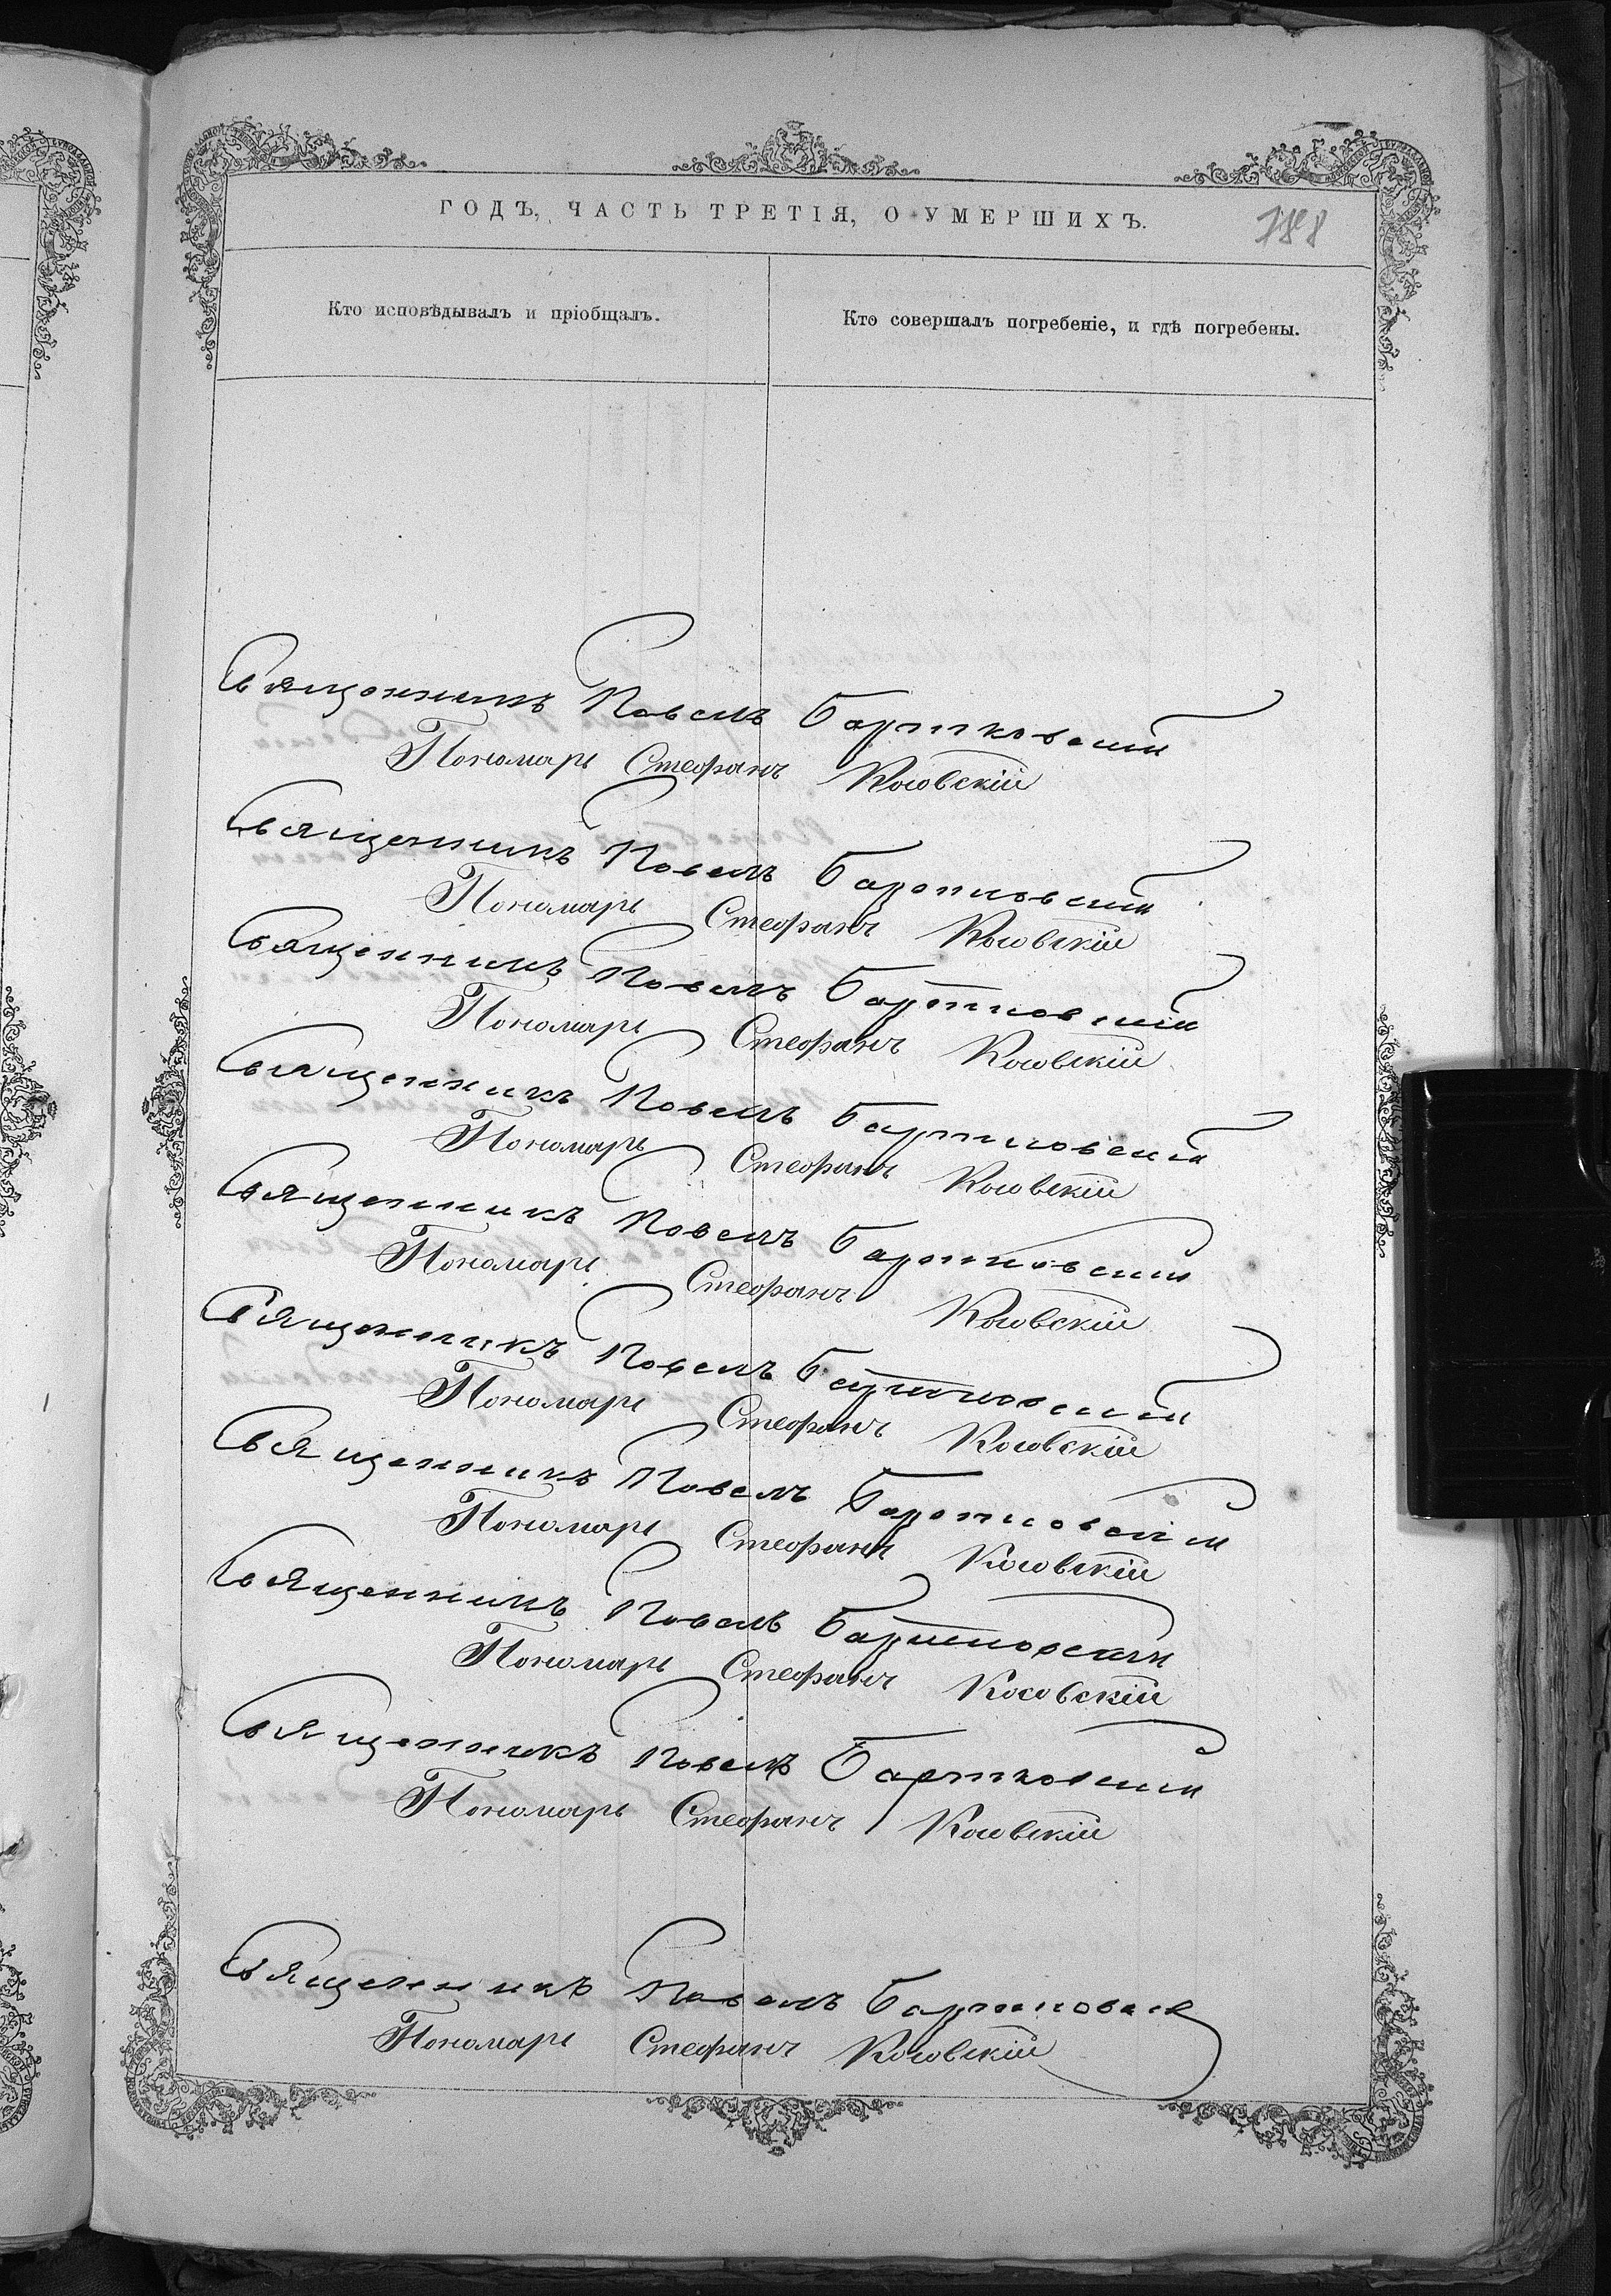 ГОДЪ, ЧАСТЬ ТРЕТІЯ, О УМЕРШИХЪ.
788
Кто исповѣдывалъ и пріобщалъ.
Кто совершалъ погребеніе, и гдѣ погребены.
Священникъ Павелъ Бартковскій
Пономарь Стефанъ Косовскій
Священникъ Павелъ Бартковскій
Пономарь Стефанъ Косовскій
Священникъ Павелъ Бартковскій
Пономарь Стефанъ Косовскій
Священникъ Павелъ Бартковскій
Пономарь Стефанъ Косовскій
Священникъ Павелъ Бартковскій
Пономарь Стефанъ Косовскій
Священникъ Павелъ Бартковскій
Пономарь Стефанъ Косовскій
Священникъ Павелъ Бартковскій
Пономарь Стефанъ Косовскій
Священникъ Павелъ Бартковскій
Пономарь Стефанъ Косовскій
Священникъ Павелъ Бартковскій
Пономарь Стефанъ Косовскій
Священникъ Павелъ Бартковск
Пономарь Стефанъ Косовскій